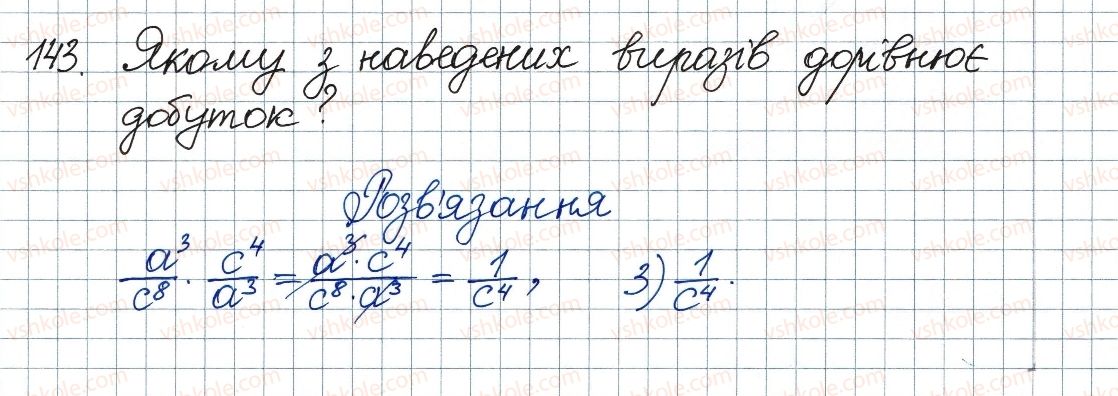 143. Якому з наведених виразів дорівнює
добуток?
Розв'язання
a³/c⁸ · c⁴/a³ = a³·c⁴/c⁸·a³ = 1/c⁴, 3) 1/c⁴.